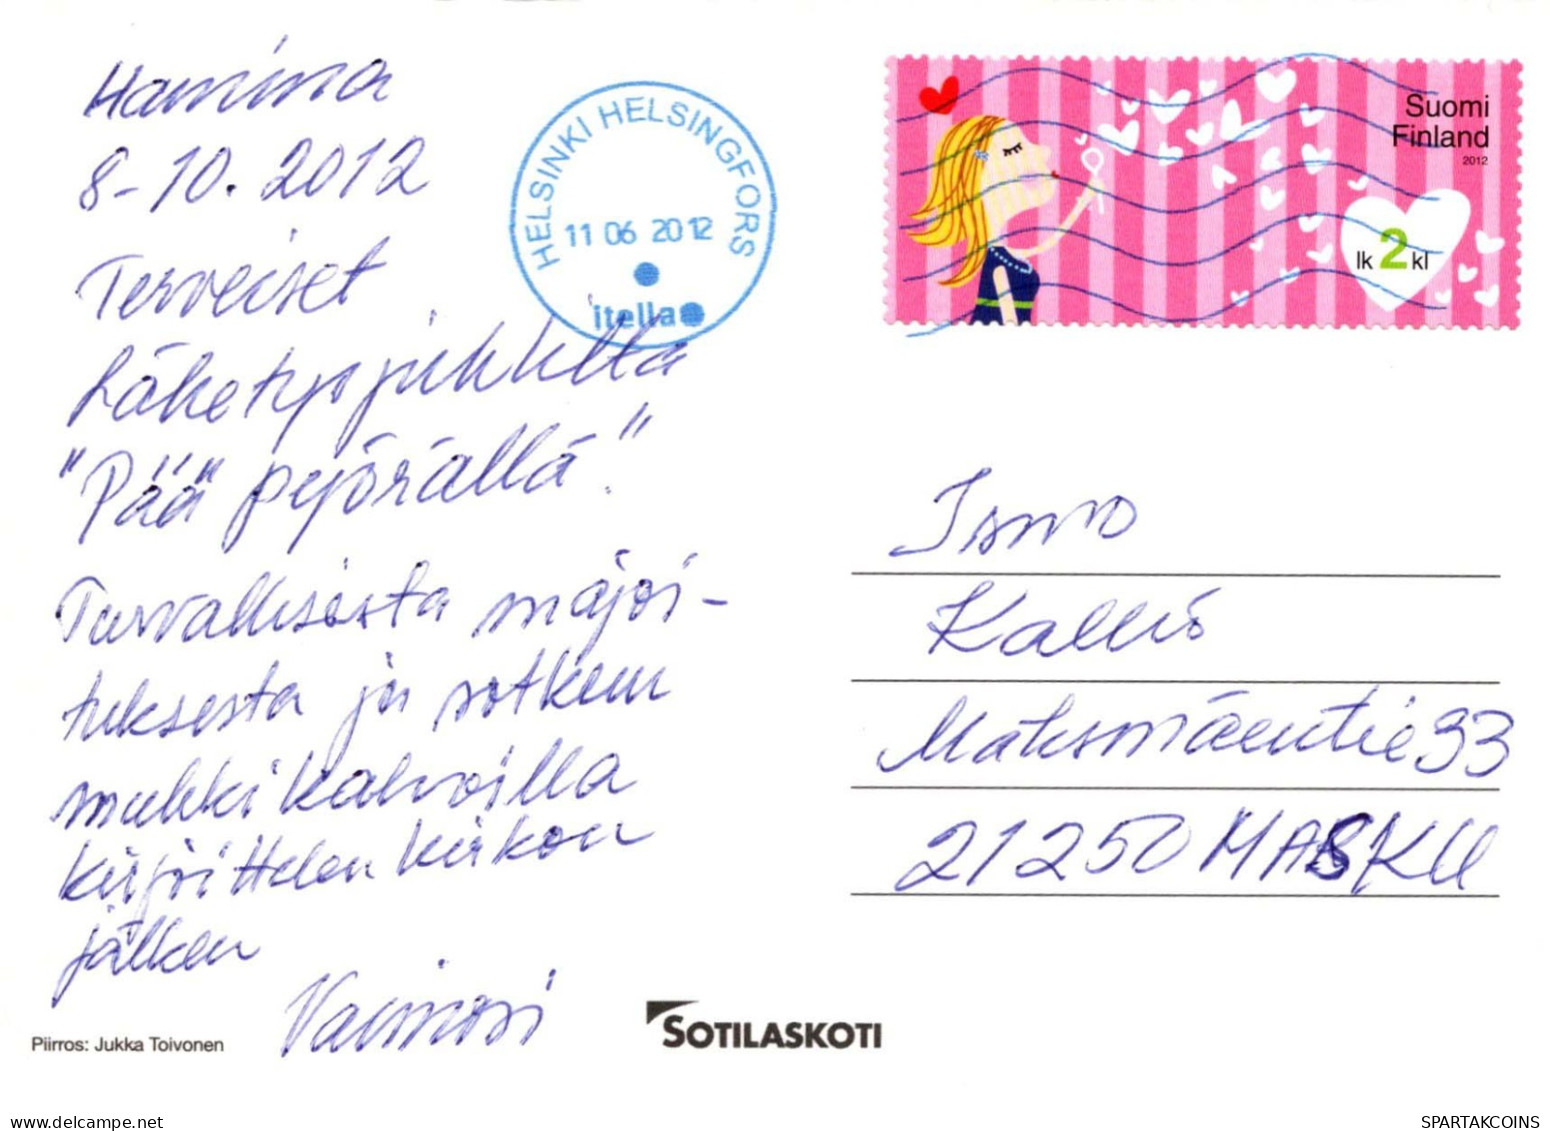 Hamina
8-10. 2012
Terveiset
Lähetysjuhlilta
"Pää pyörällä".
Turvallisesta majoi-
tuksesta ja sotkun
mukki kahvoilla
kirjoittelen kirkon
jälkeen
Vaimosi
Piirros: Jukka Toivonen
HELSINKI HELSINGFORS
11 06 2012
itella
Suomi
Finland
2012
lk 2 kl
Ismo
Kallio
Maksmäentie 33
21250 MASKU
SOTILASKOTI
www.delcampe.net
SPARTAKCOINS